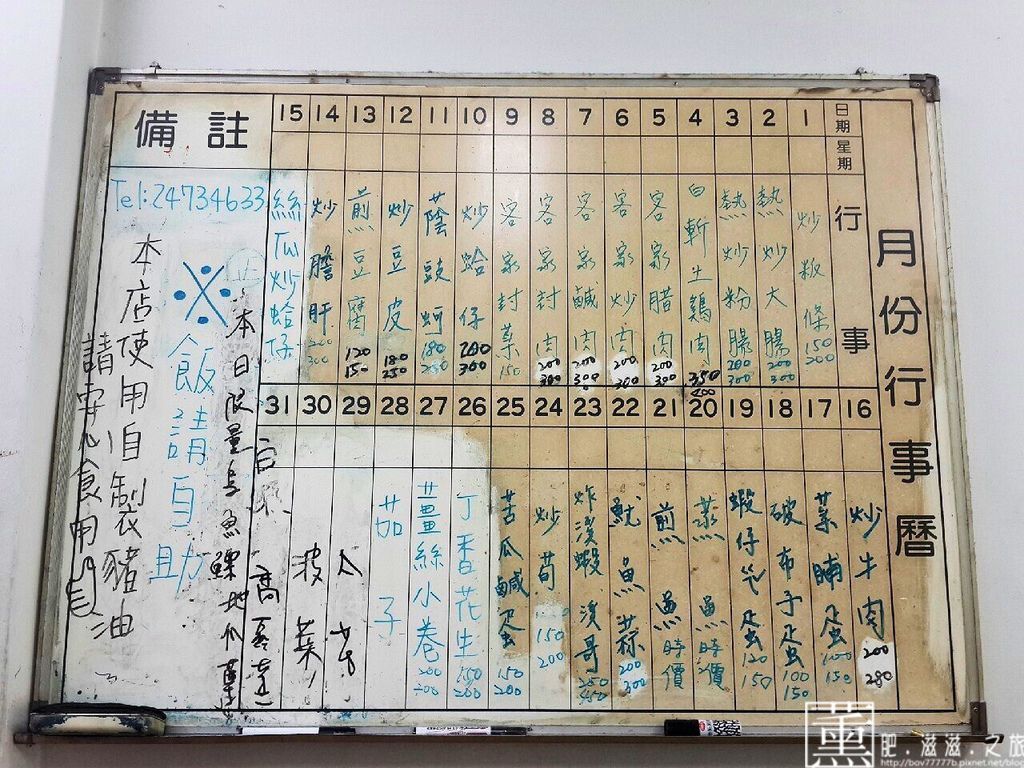 月份行事曆
日期 星期 行事
1 炒粄條 150 200
2 熱炒大腸 200 300
3 熱炒粉腸 200 300
4 白斬土鷄肉 350
5 客家腊肉 200 300
6 客家炒肉 200 300
7 客家鹹肉 200 300
8 客家封肉 200 300
9 客家封菜 150
10 炒蛤仔 200 300
11 蔭豉蚵 180
12 炒豆皮 180 250
13 煎豆腐 120 150
14 炒膽肝 200 300
15 絲瓜炒蛤仔
16 炒牛肉 200 280
17 菜脯蛋 100 150
18 破布子蛋 100 150
19 蝦仔蛋 120 150
20 蒸魚 時價
21 煎魚 時價
22 魷魚蒜 200 300
23 炸溪蝦 溪哥 250
24 炒筍 150 200
25 苦瓜鹹蛋 150 200
26 丁香花生 150 200
27 薑絲小卷 200
28 茄子
29
30 菠菜
31
備註
Tel:24734633
※飯請自助
本店使用自製豬油
請安心食用
本日限量烏魚
肥.滋滋.之旅
http://bov77777b.pixnet.net/blog